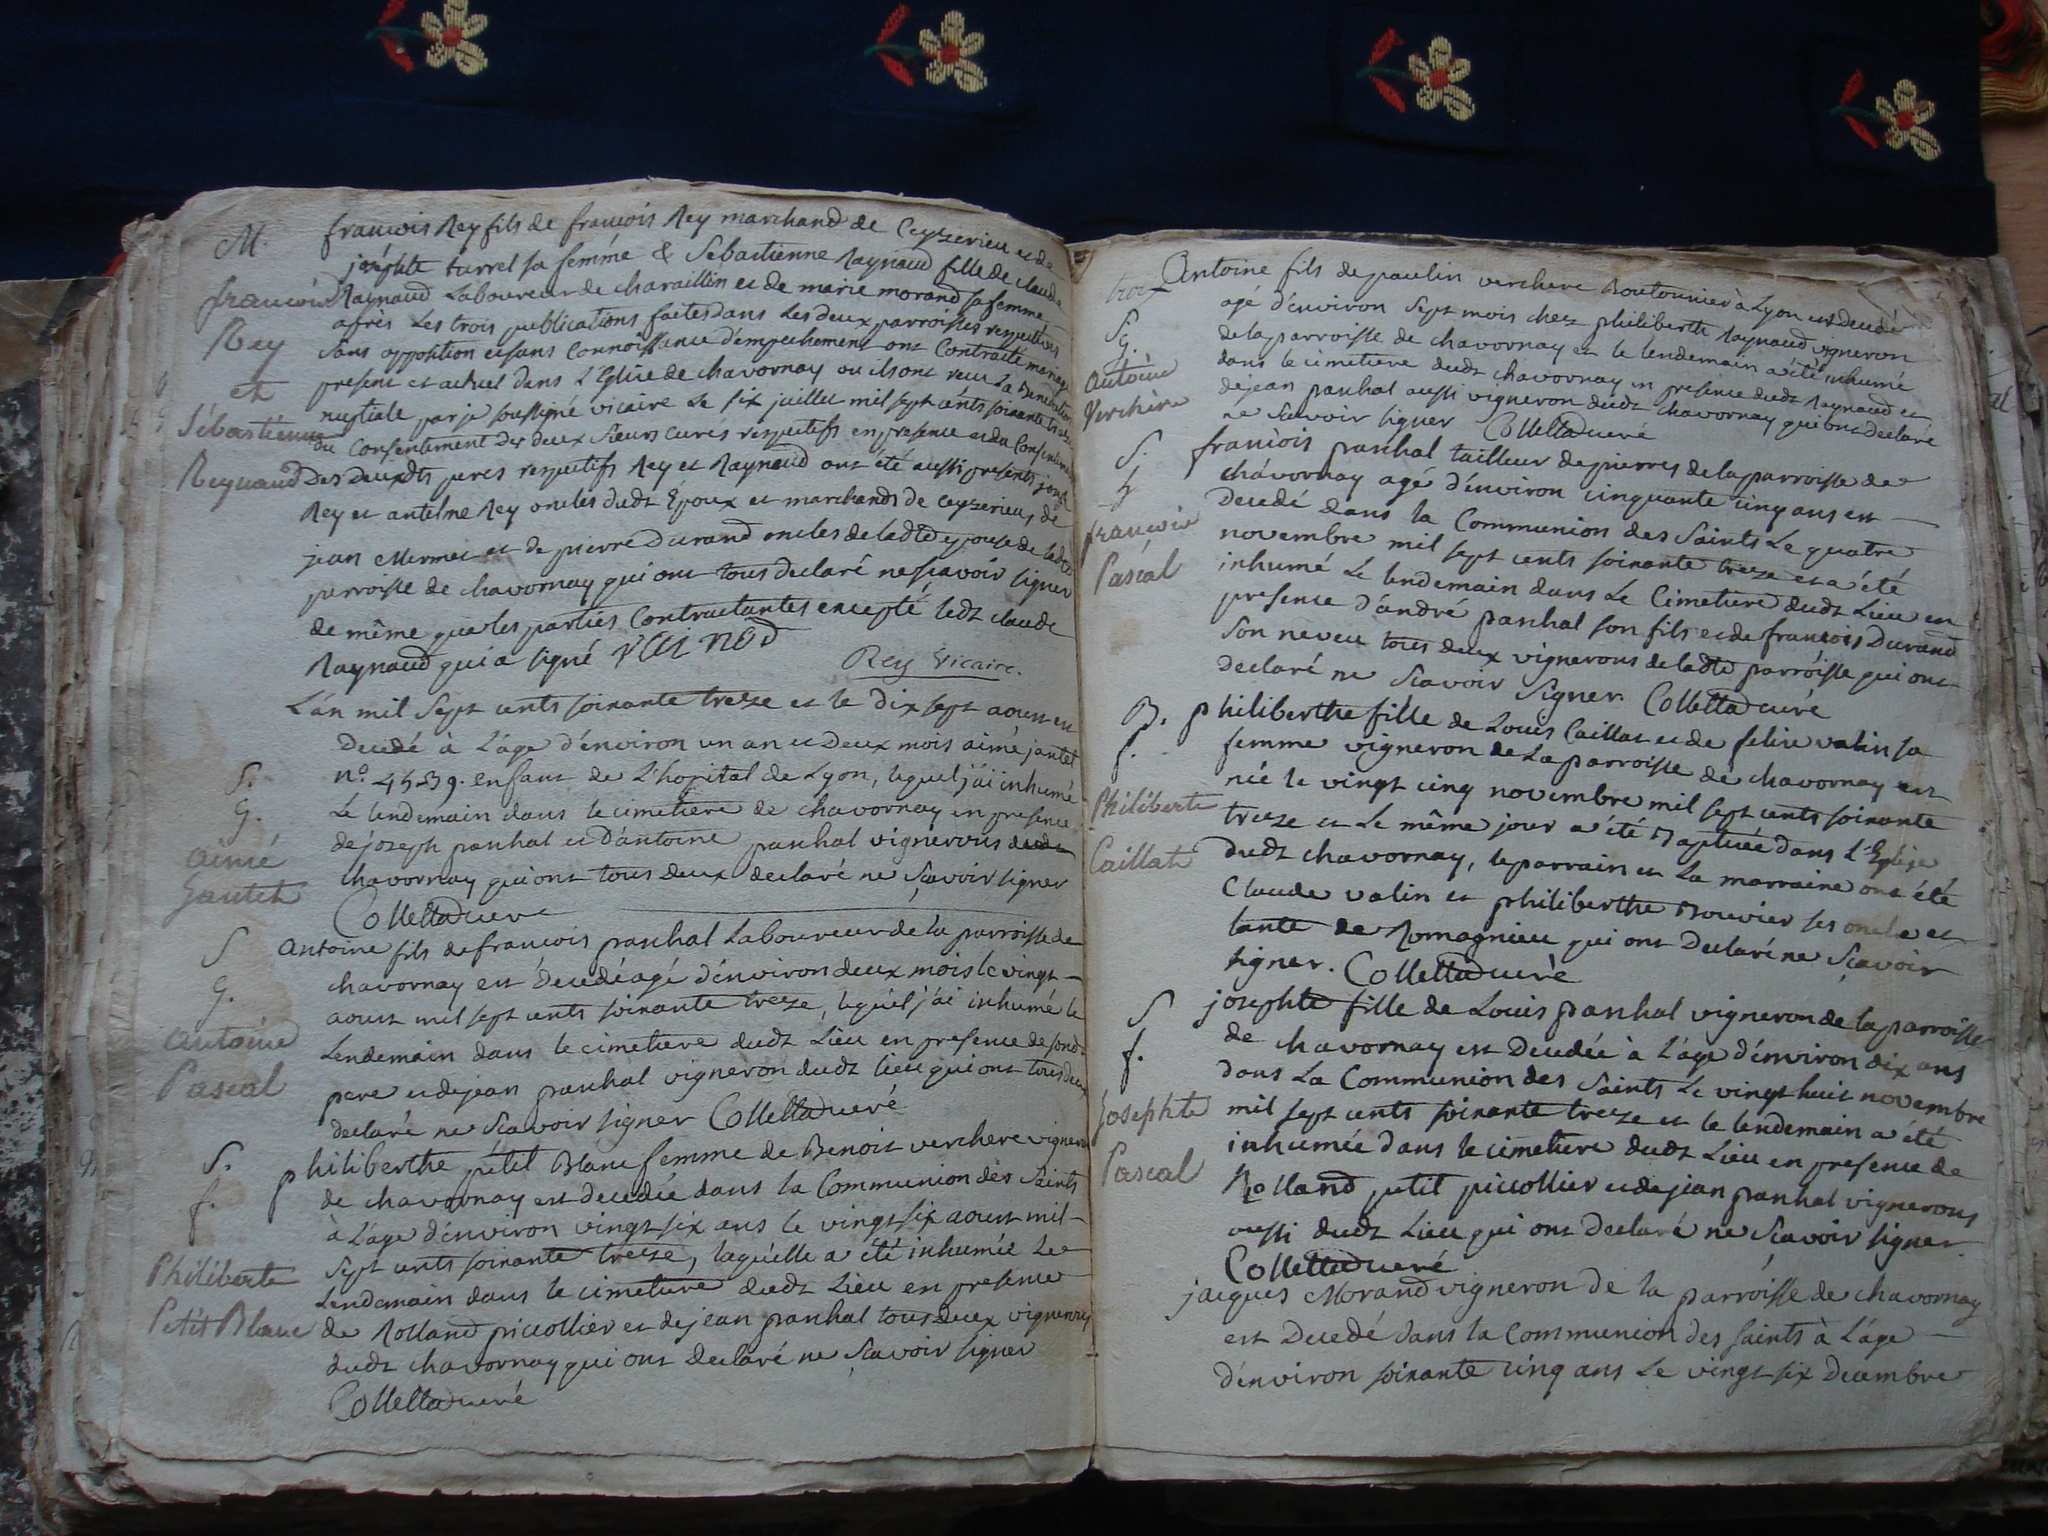 M.
françois Rey fils de françois Rey marchand de Ceyzerieu et de
josephte turrel sa femme & Sébastienne Raynaud fille de claude
françois
Raynaud Laboureur de charaillin et de marie morand sa femme
après Les trois publications faites dans Les deux parroisses respectives
Rey
sans opposition et sans Connoissance d'empechement ont Contracté mariage
et
present et actuel dans L'Eglise de chavornay ou ils ont receu La Benediction
nuptiale par je soussigné vicaire Le six juillet mil sept cents soixante treze
Sébastienne
du Consentement des deux sieurs curés respectifs en presence et du Consentement
Reynaud
Des deux dts peres respectifs Rey et Raynaud ont été aussi presents joseph
Rey et antelme Rey oncles dudt Epoux et marchands de Ceyzerieu, de
jean Mermet et de pierre Durand oncles de ladte epouse de ladte
parroisse de chavornay qui ont tous declaré ne scavoir signer
de même que les parties Contractantes excepté ledt claude
Raynaud qui a signé
Rey Vicaire.
L'an mil Sept cents soixante treze et le dix sept aoust est
Decedé à L'âge d'environ un an et Deux mois aimé jantet
S.
n° 4539. enfant de L'hopital de Lyon, lequel j'ai inhumé
G.
Le lendemain dans le cimetiere de chavornay en presence
aimé
de joseph paschal et D'antoine paschal vignerons dudt
Jantet
chavornay qui ont tous deux declaré ne Scavoir signer
Colletta curé
S
antoine fils de françois paschal Laboureur de la parroisse de
G.
chavornay est Decedé agé d'environ deux mois le vingt
aoust mil sept cents soixante treze, lequel j'ai inhumé le
antoine
Lendemain dans le cimetiere dudt Lieu en presence de sondt
Pascal
pere et de jean paschal vigneron dudt lieu qui ont tous deux
declaré ne Scavoir signer Colletta curé
S.
philiberthe petit Blanc femme de Benoit verchere vigneron
f.
de chavornay est decedée dans la Communion des Saints
à L'age d'environ vingt six ans le vingt six aoust mil
Philiberte
Sept cents soixante treze, laquelle a été inhumée Le
Lendemain dans le cimetiere dudt Lieu en presence
Petit Blanc
de Rolland piccollier et de jean paschal tous deux vignerons
dudt chavornay qui ont declaré ne Scavoir signer
Colletta curé
Antoine fils de paulin verchere Boutonnier à Lyon est decedé
agé d'environ sept mois chez philiberth Raynaud vigneron
S.
G.
de la parroisse de chavornay et le lendemain a été inhumé
dans le cimetiere dudt chavornay en presence dudt Raynaud et
antoine
de jean paschal aussi vigneron dudt chavornay qui ont declaré
Verchère
ne Scavoir signer Colletta curé
S.
françois paschal tailleur de pierres de la parroisse de
chavornay agé d'environ cinquante cinq ans est
Decedé dans la Communion des Saints Le quatre
françois
novembre mil sept cents soixante treze et a été
Pascal
inhumé Le lendemain dans Le Cimetiere dudt Lieu en
presence d'andré paschal son fils et de françois Durand
son neveu tous deux vignerons de ladte parroisse qui ont
declaré ne Scavoir Signer. Colletta curé
B.
philiberthe fille de Louis Caillat et de felise valin sa
f.
femme vigneron de La parroisse de chavornay est
née le vingt cinq novembre mil sept cents soixante
Philiberte
treze et Le même jour a été Baptisée dans L'Eglise
Caillate
dudt chavornay, le parrain et La marraine ont été
Claude valin et philiberthe Bouvier ses oncle et
tante de Romagnieu qui ont Declaré ne Scavoir
signer. Colletta curé
S
josephte fille de Louis paschal vigneron de la parroisse
f.
de chavornay est Decedée à L'age d'environ dix ans
dans La Communion des Saints Le vingt huit novembre
Josephte
mil sept cents soixante treze et le lendemain a été
inhumée dans le cimetiere dudt Lieu en presence de
Pascal
Rolland petit piccollier et de jean paschal vignerons
aussi dudt Lieu qui ont Declaré ne Scavoir signer
Colletta curé
jacques Morand vigneron de la parroisse de chavornay
est Decedé dans la Communion des saints à L'age
d'environ soixante cinq ans Le vingt six Decembre